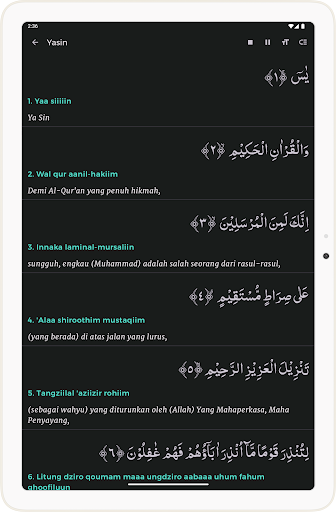 2:36
Yasin
يٰسۤ ﴿١﴾
1. Yaa siiiiin
Ya Sin
وَالْقُرْاٰنِ الْحَكِيْمِ ﴿٢﴾
2. Wal qur aanil-hakiim
Demi Al-Qur'an yang penuh hikmah,
اِنَّكَ لَمِنَ الْمُرْسَلِيْنَ ﴿٣﴾
3. Innaka laminal-mursaliin
sungguh, engkau (Muhammad) adalah salah seorang dari rasul-rasul,
عَلٰى صِرَاطٍ مُّسْتَقِيْمٍ ﴿٤﴾
4. 'Alaa shiroothim mustaqiim
(yang berada) di atas jalan yang lurus,
تَنْزِيْلَ الْعَزِيْزِ الرَّحِيْمِ ﴿٥﴾
5. Tangziilal 'aziizir rohiim
(sebagai wahyu) yang diturunkan oleh (Allah) Yang Mahaperkasa, Maha
Penyayang,
لِتُنْذِرَ قَوْمًا مَّآ اُنْذِرَ اٰبَاۤؤُهُمْ فَهُمْ غٰفِلُوْنَ ﴿٦﴾
6. Litung dziro qoumam maaa ungdziro aabaaa uhum fahum
ghoofiluun